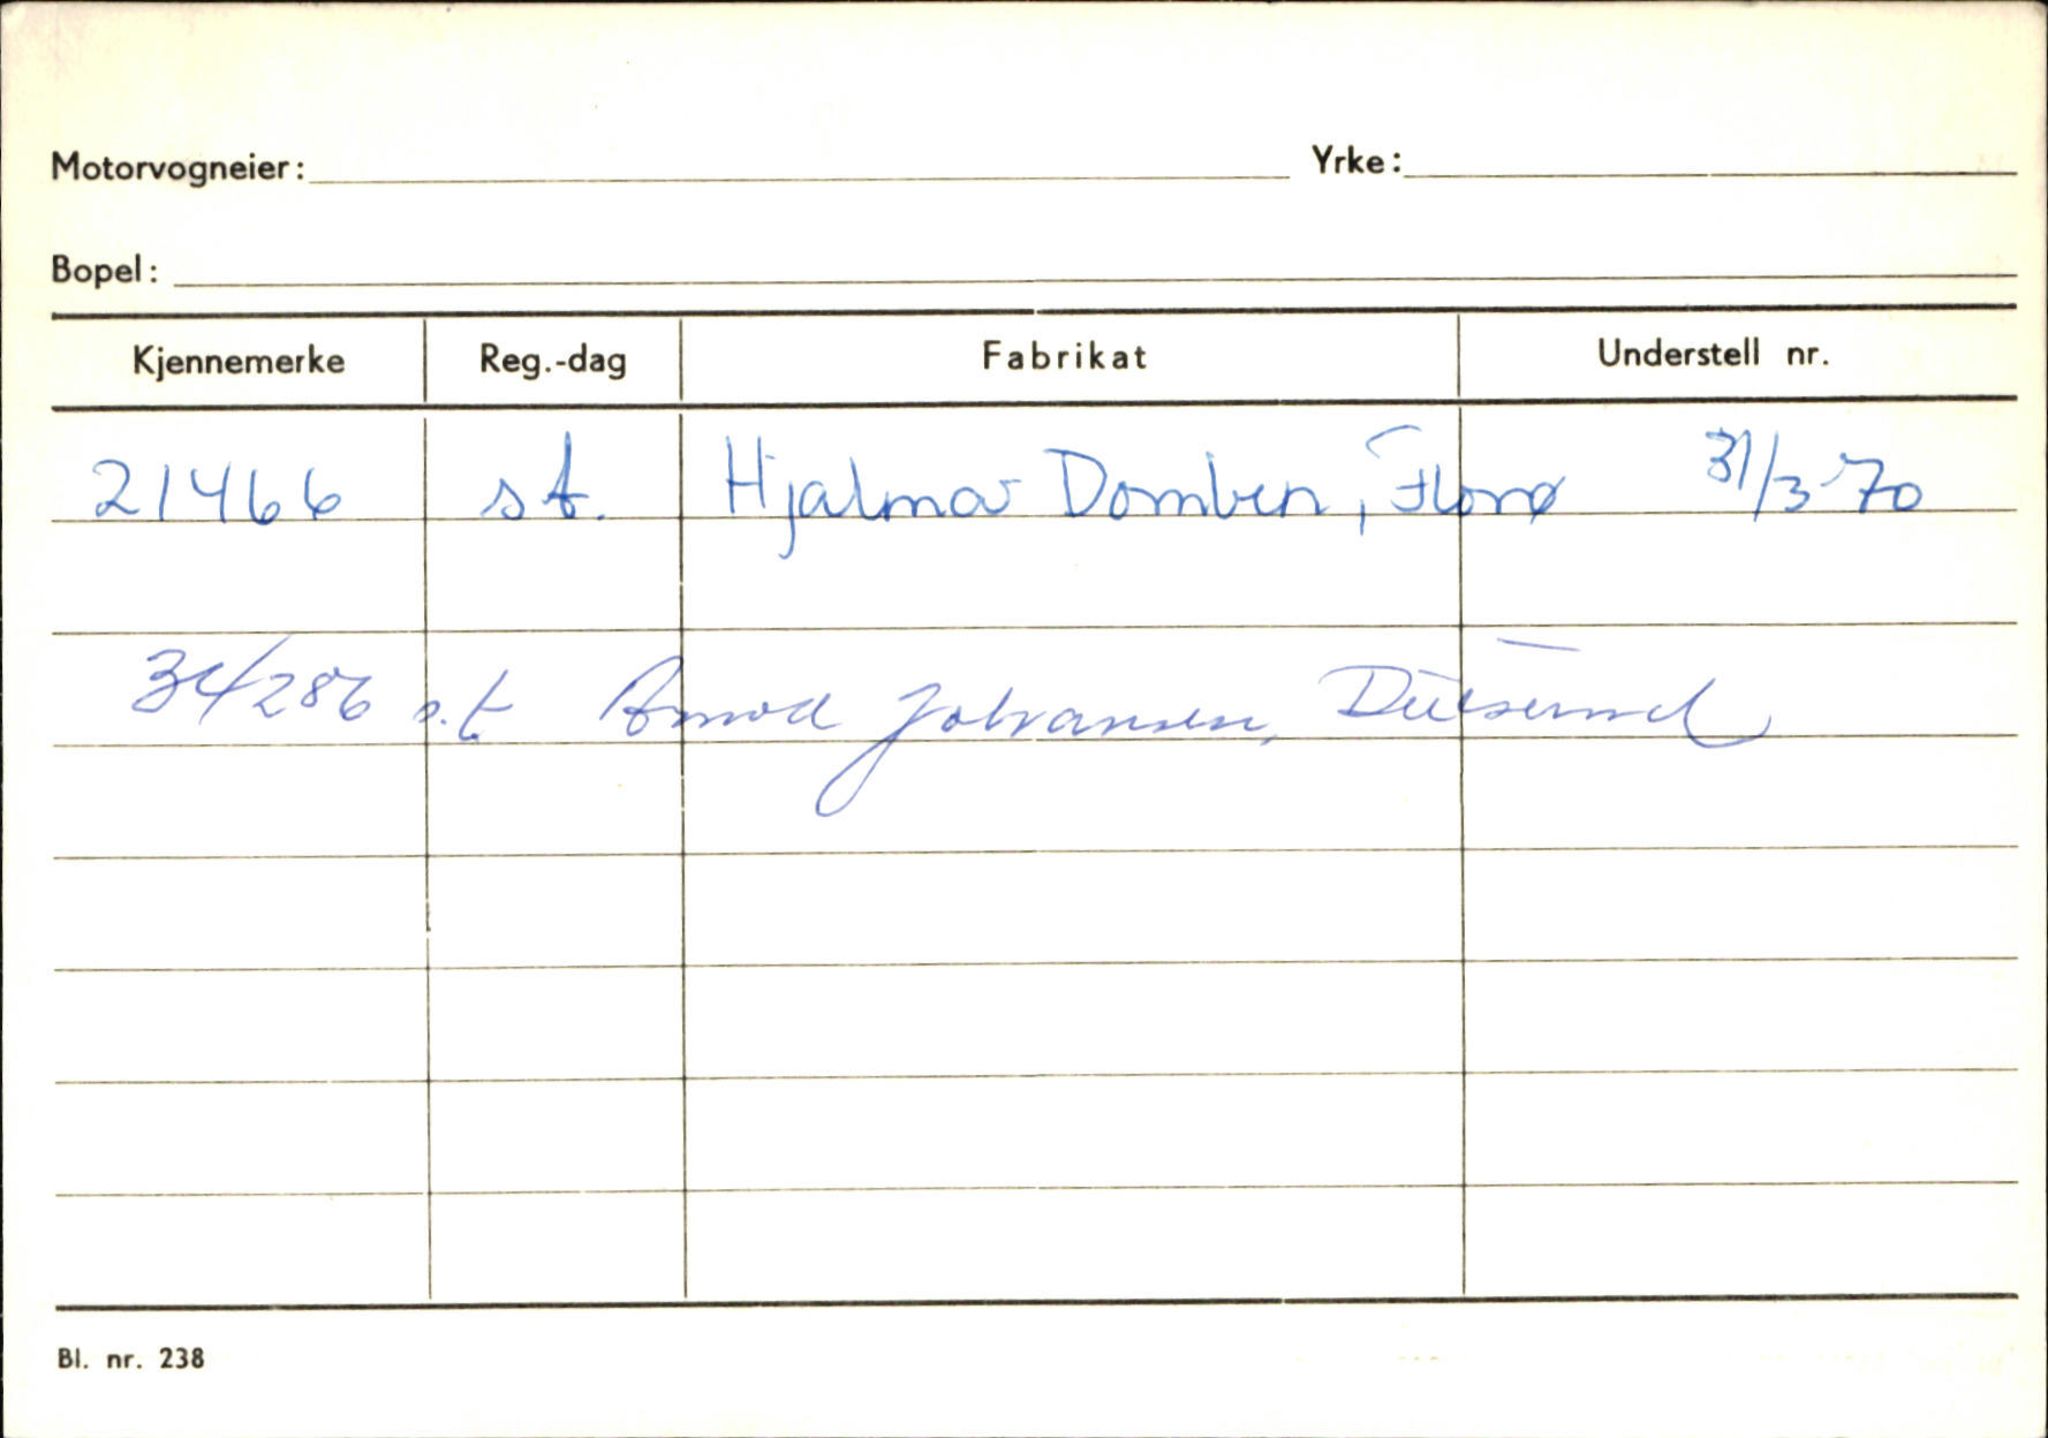 Motorvogneier: Yrke:
Bopel:
Kjennemerke Reg.-dag Fabrikat Understell nr.
21466 st. Hjalmar Domben, Florø 31/3-70
34286 s.t. Johansen,
Bl. nr. 238